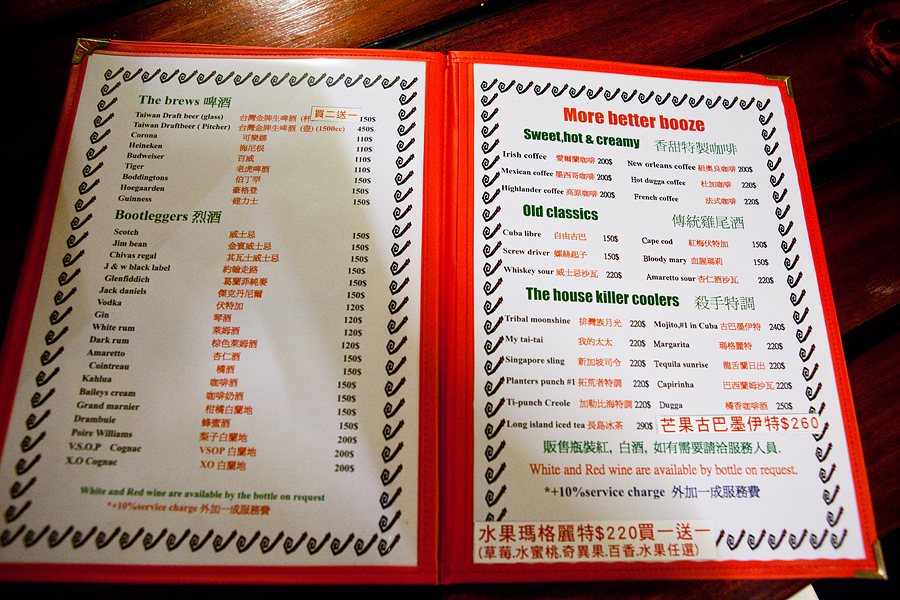 The brews 啤酒
Taiwan Draft beer (glass) 台灣金牌生啤酒 (杯) 150$
買二送一
Taiwan Draftbeer ( Pitcher) 台灣金牌生啤酒 (壺) (1500cc) 450$
Corona 可樂娜 110$
Heineken 海尼根 110$
Budweiser 百威 110$
Tiger 老虎啤酒 110$
Boddingtons 伯丁罕 150$
Hoegaarden 豪格登 150$
Guinness 健力士 150$
Bootleggers 烈酒
Scotch 威士忌 150$
Jim bean 金賓威士忌 150$
Chivas regal 其瓦士威士忌 150$
J & w black label 約翰走路 150$
Glenfiddich 葛蘭菲純麥 150$
Jack daniels 傑克丹尼爾 150$
Vodka 伏特加 120$
Gin 琴酒 120$
White rum 萊姆酒 120$
Dark rum 棕色萊姆酒 120$
Amaretto 杏仁酒 150$
Cointreau 橘酒 150$
Kahlua 咖啡酒 150$
Baileys cream 咖啡奶酒 150$
Grand marnier 柑橘白蘭地 150$
Drambuie 蜂蜜酒 150$
Poire Williams 梨子白蘭地 200$
V.S.O.P Cognac VSOP 白蘭地 200$
X.O Cognac XO 白蘭地 200$
White and Red wine are available by the bottle on request
*+10%service charge 外加一成服務費
More better booze
Sweet,hot & creamy 香甜特製咖啡
Irish coffee 愛爾蘭咖啡 200$ New orleans coffee 紐奧良咖啡 200$
Mexican coffee 墨西哥咖啡 200$ Hot dugga coffee 杜加咖啡 220$
Highlander coffee 高原咖啡 200$ French coffee 法式咖啡 220$
Old classics 傳統雞尾酒
Cuba libre 自由古巴 150$ Cape cod 紅梅伏特加 150$
Screw driver 螺絲起子 150$ Bloody mary 血腥瑪莉 150$
Whiskey sour 威士忌沙瓦 220$ Amaretto sour 杏仁酒沙瓦 220$
The house killer coolers 殺手特調
Tribal moonshine 排灣族月光 220$ Mojito,#1 in Cuba 古巴墨伊特 240$
My tai-tai 我的太太 220$ Margarita 瑪格麗特 220$
Singapore sling 新加坡司令 220$ Tequila sunrise 龍舌蘭日出 220$
Planters punch #1 拓荒者特調 220$ Capirinha 巴西蘭姆沙瓦 220$
Ti-punch Creole 加勒比海特調 220$ Dugga 橘香咖啡酒 250$
Long island iced tea 長島冰茶 290$ 芒果古巴墨伊特$260
販售瓶裝紅, 白酒, 如有需要請洽服務人員.
White and Red wine are available by bottle on request.
*+10%service charge 外加一成服務費
水果瑪格麗特$220買一送一
(草莓.水蜜桃.奇異果.百香.水果任選)